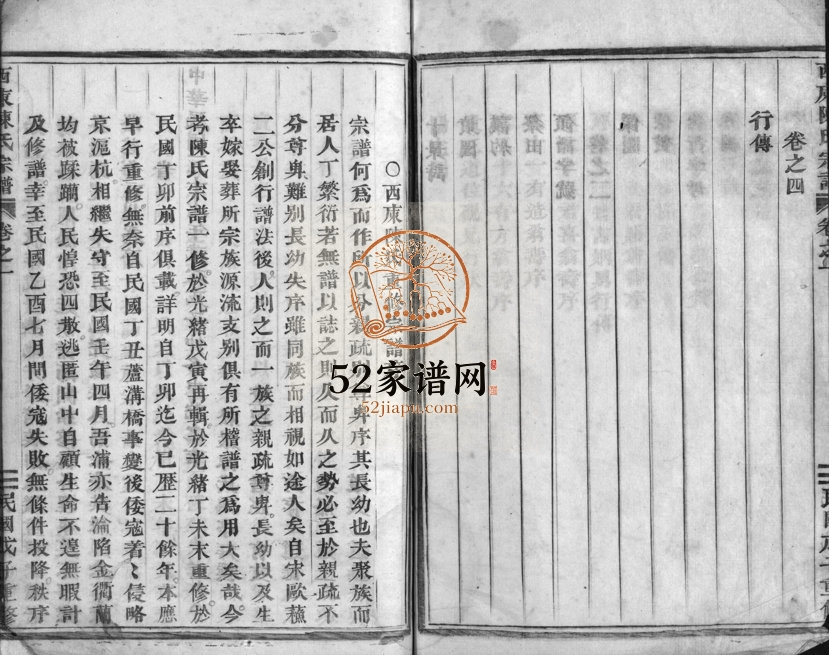 卷之四
行傳
民國戊子重修
○西東陳氏重修宗譜
宗譜何爲而作所以分親疏別尊卑序其長幼也夫聚族而
居人丁繁衍若無譜以誌之則久而久之勢必至於親疏不
分尊卑難別長幼失序雖同族而相視如途人矣自宋歐蘇
二公創行譜法後人則之而一族之親疏尊卑長幼以及生
卒嫁娶葬所宗族源流支別俱有所稽譜之爲用大矣哉今
考陳氏宗譜一修於光緒戊寅再輯於光緒丁未末重修於
民國丁卯前序俱載詳明自丁卯迄今已歷二十餘年本應
早行重修無奈自民國丁丑蘆溝橋事變後倭寇着〻侵略
京滬杭相繼失守至民國壬午四月吾浦亦告淪陷金衢蘭
均被蹂躪人民惶恐四散逃匿山中自顧生命不遑無暇計
及修譜幸至民國乙酉七月間倭寇失敗無條件投降秩序
西東陳氏宗譜 卷之一 民國戊子重修
中華
52家谱网
52jiapu.com